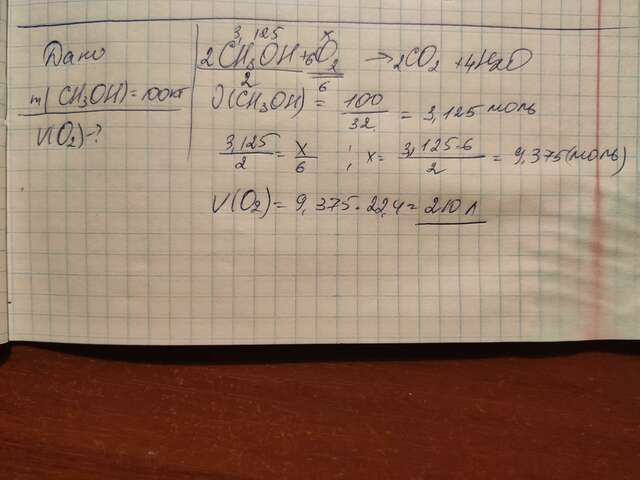 Дано
m(CH3OH)=100кг
V(O2)-?
3,125 x
2CH3OH+6O2 →2CO2 +4H2O
2 6
J(CH3OH) = 100/32 = 3,125 моль
3,125/2 = x/6 ; x= 3,125·6/2 = 9,375(моль)
V(O2)= 9,375·22,4=210л